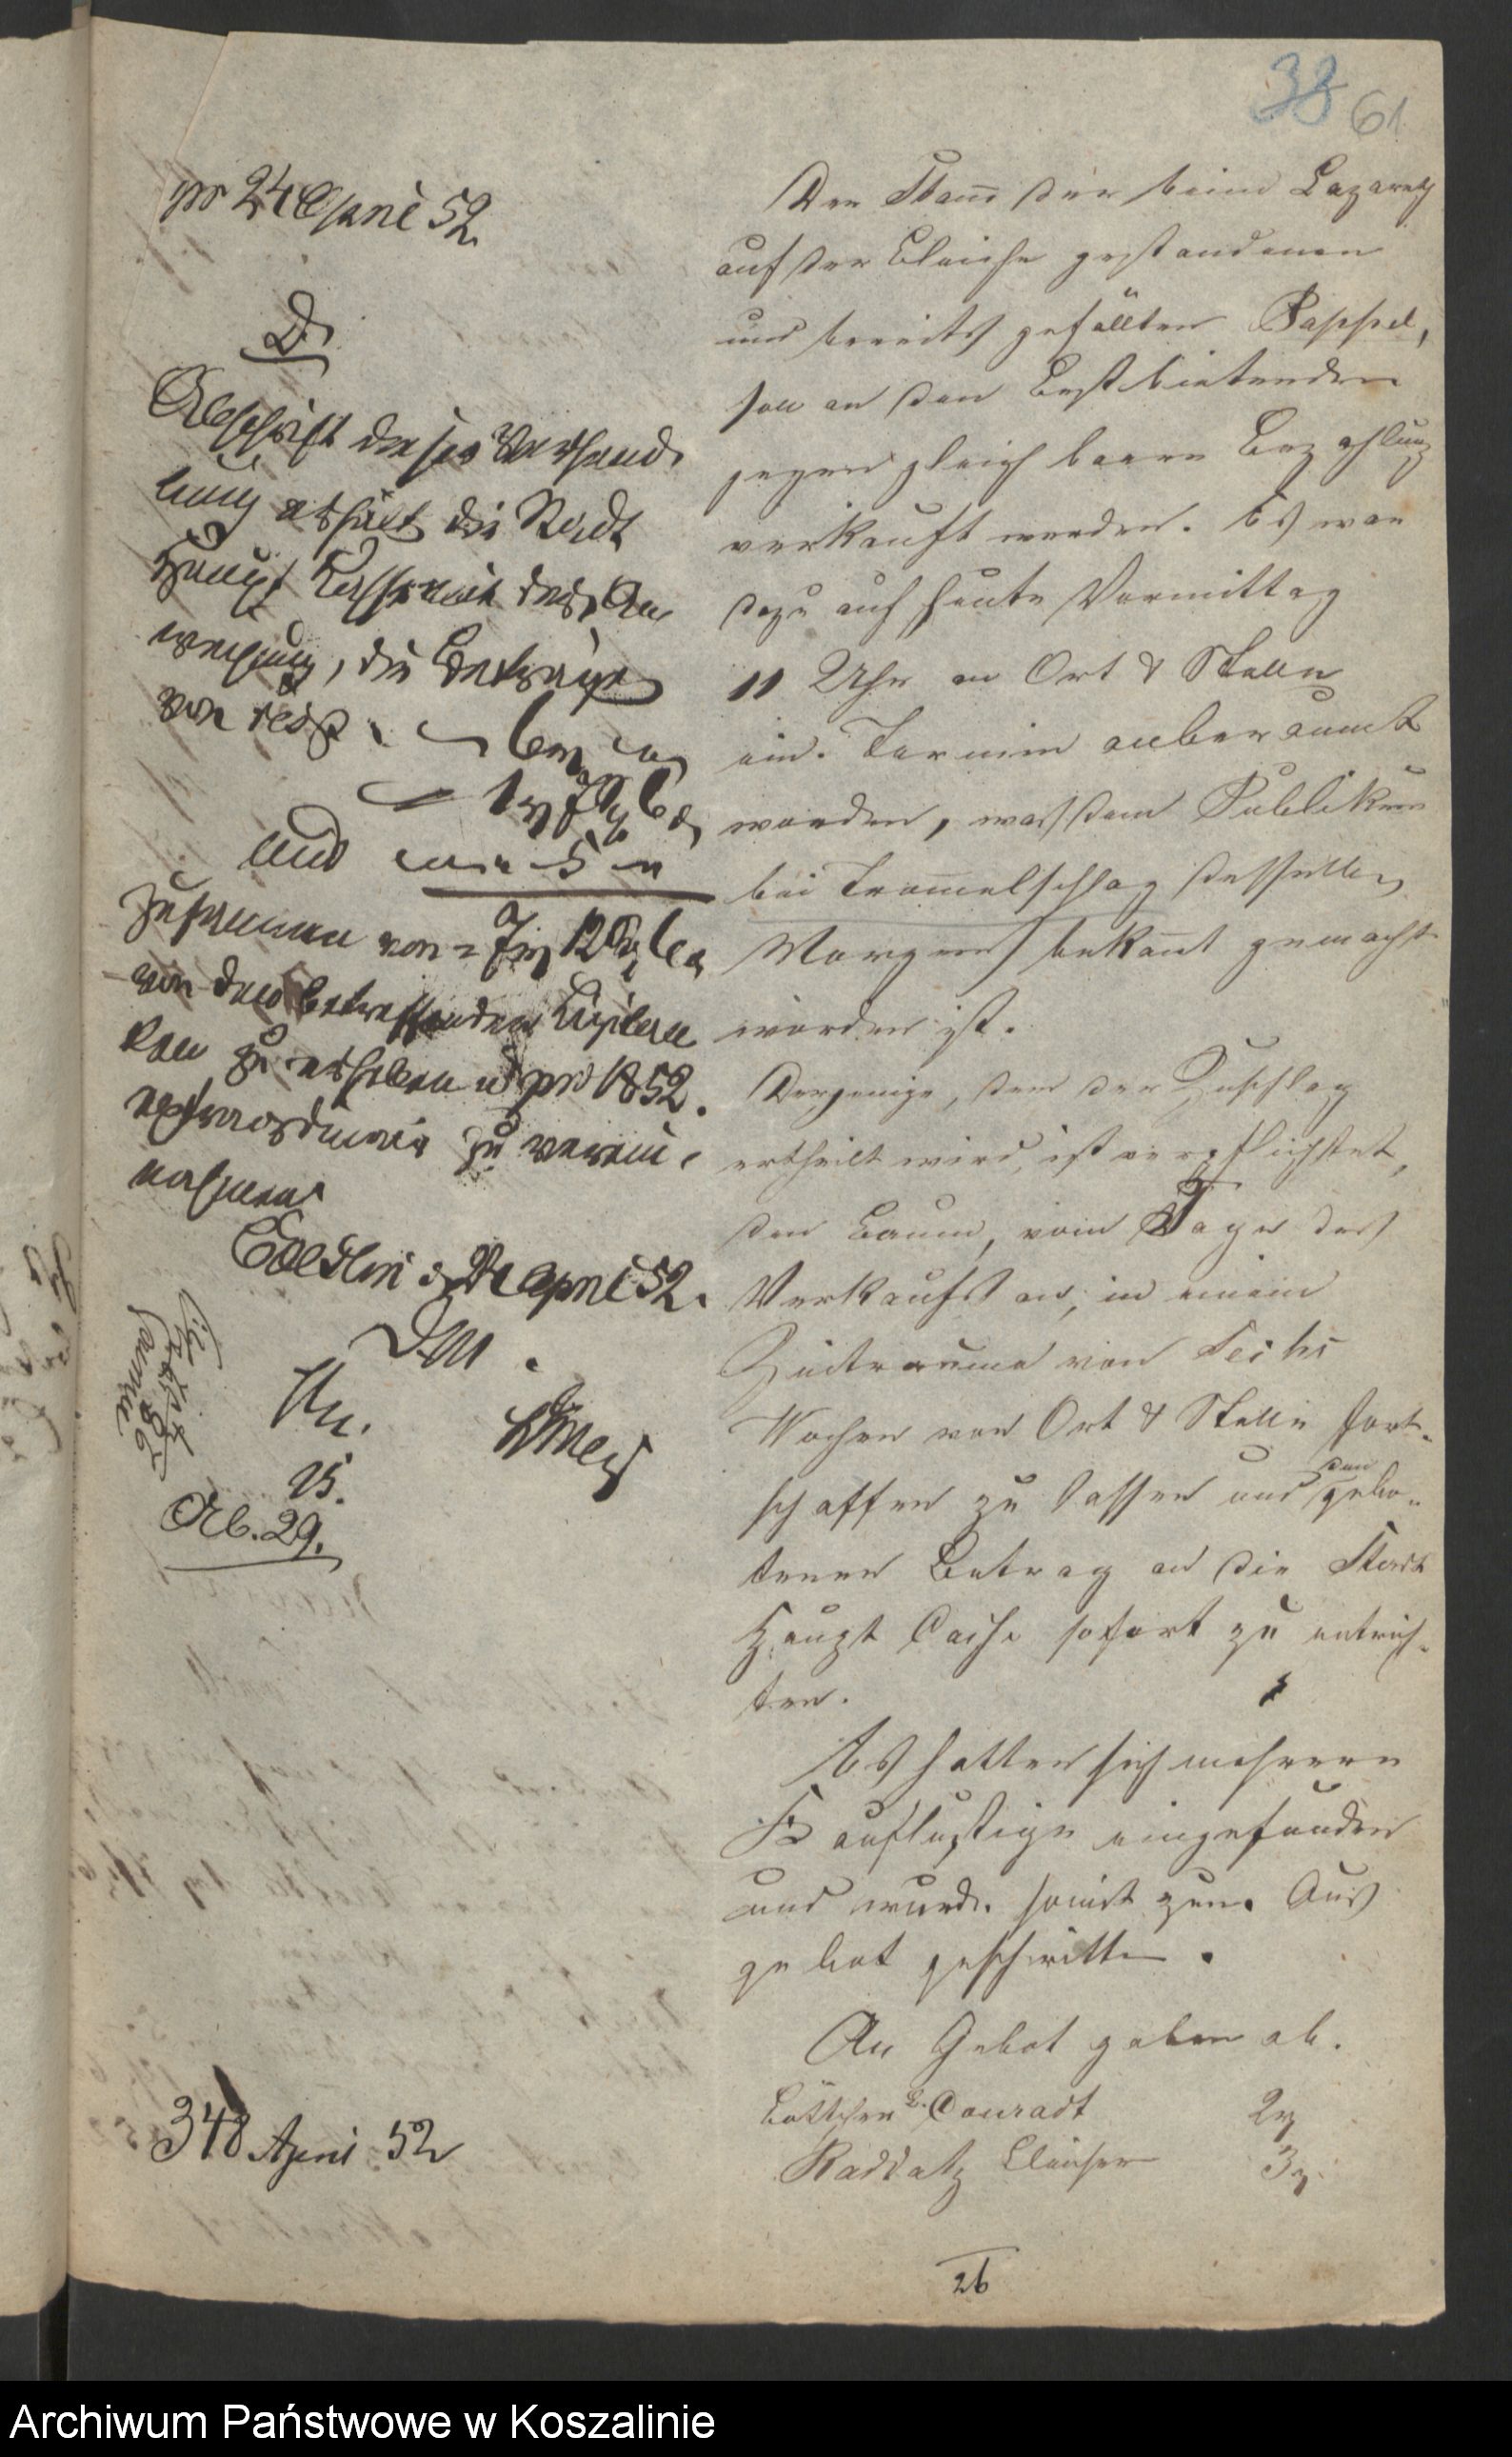 38 61
pr 24 April 52.
D.
Abschrift dieser Verhand-
lung erhält die Stadt
Haupt Kasse mit der An
weisung, die Beträge
von resp.
und
zusammen von
von den betreffenden Licitan
ten zu erheben u pro 1852.
extraordinair zu verein-
nahmen
Coeslin d April 52.
DM.
25.
Ab. 29.
348 April 52
Der Stam der beim Lazareth
auf der Bleiche gestandenen
und bereits gefällten Pappel,
soll an den Bestbietenden
gegen gleich baare Bezahlung
verkauft werden. Es war
dazu auf heute Vormittag
11 Uhr an Ort & Stelle
ein Termin anberaumt
worden, was dem Publikum
bei Tromelschlag desselben
Morgens bekant gemacht
worden ist.
Derjenige, dem der Zuschlag
ertheilt wird, ist verpflichtet,
den Baum, vom Tage des
Verkaufs an, in einem
Zeitraume von Sechs
Wochen von Ort & Stelle fort-
schaffen zu lassen und den gebo-
tenen Betrag an die Stadt
Haupt Casse sofort zu entrich-
ten.
Es hatten sich mehrere
Kauflustige eingefunden
und wurde somit zum Aus
gebot geschritten.
An Gebot gaben ab.
Böttcher Conradt 2
Raddatz Bleicher 3
26
Archiwum Państwowe w Koszalinie